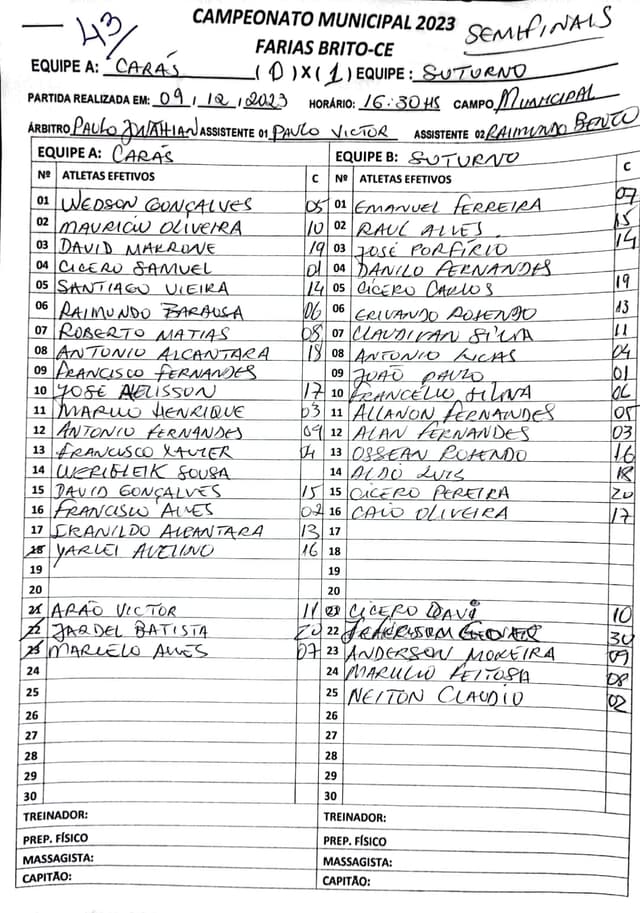 43/
CAMPEONATO MUNICIPAL 2023
SEMIFINAIS
FARIAS BRITO-CE
EQUIPE A: CARÁS (0) X (1) EQUIPE: SUTURNO
PARTIDA REALIZADA EM: 09/12/2023 HORÁRIO: 16:30HS CAMPO MUNICIPAL
ÁRBITRO PAULO JHATHIAN ASSISTENTE 01 PAULO VICTOR ASSISTENTE 02 RAIMUNDO BENTO
EQUIPE A: CARÁS EQUIPE B: SUTURNO
Nº ATLETAS EFETIVOS C Nº ATLETAS EFETIVOS C
01 WEDSON GONÇALVES 05 01 EMANUEL FERREIRA 07
02 MAURICIO OLIVEIRA 10 02 RAUL ALVES 15
03 DAVID MAKRONE 19 03 JOSÉ PORFÍRIO 14
04 CICERO SAMUEL 01 04 DANILO FERNANDES
05 SANTIAGO VIEIRA 14 05 CÍCERO CARLOS 19
06 RAIMUNDO BARBOSA 06 06 ERIVANDO ROSENDO 13
07 ROBERTO MATIAS 08 07 CLAUDIVAN SILVA 11
08 ANTONIO ALCANTARA 18 08 ANTONIO LUCAS 04
09 FRANCISCO FERNANDES 09 JOÃO PAULO 01
10 JOSÉ AELISSON 17 10 FRANCÉLIO SILVA 06
11 MARCIO HENRIQUE 03 11 ALLANON FERNANDES 05
12 ANTONIO FERNANDES 09 12 ALAN FERNANDES 03
13 FRANCISCO XAVIER 04 13 OSSEAN ROSENDO 16
14 WERIGLEIK SOUSA 14 ALDO LUIS 18
15 DAVID GONÇALVES 15 15 CICERO PEREIRA 20
16 FRANCISCO ALVES 02 16 CAIO OLIVEIRA 17
17 IRANILDO ALCANTARA 13 17
18 YARLEI AVELINO 16 18
19 19
20 20
21 ARÃO VICTOR 11 21 CÍCERO DAVI 10
22 JARDEL BATISTA 20 22 30
23 MARCELO ALVES 07 23 ANDERSON MOREIRA 09
24 24 MARCÍLIO FEITOSA 08
25 25 NEITON CLAUDIO 02
26 26
27 27
28 28
29 29
30 30
TREINADOR: TREINADOR:
PREP. FÍSICO PREP. FÍSICO
MASSAGISTA: MASSAGISTA:
CAPITÃO: CAPITÃO: